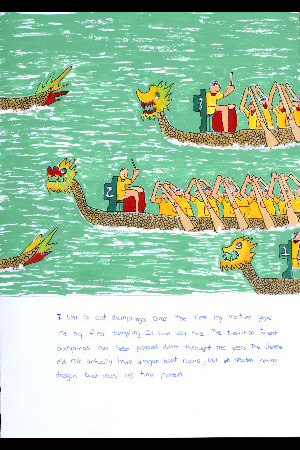 3
2
1
I like to eat dumplings since the time my mother gave
me my first dumpling. The tradition to eat
dumplings has been passed down through the years. The Chinese
did not actually have dragon boat races, but we started having
dragon boat races as time passed.